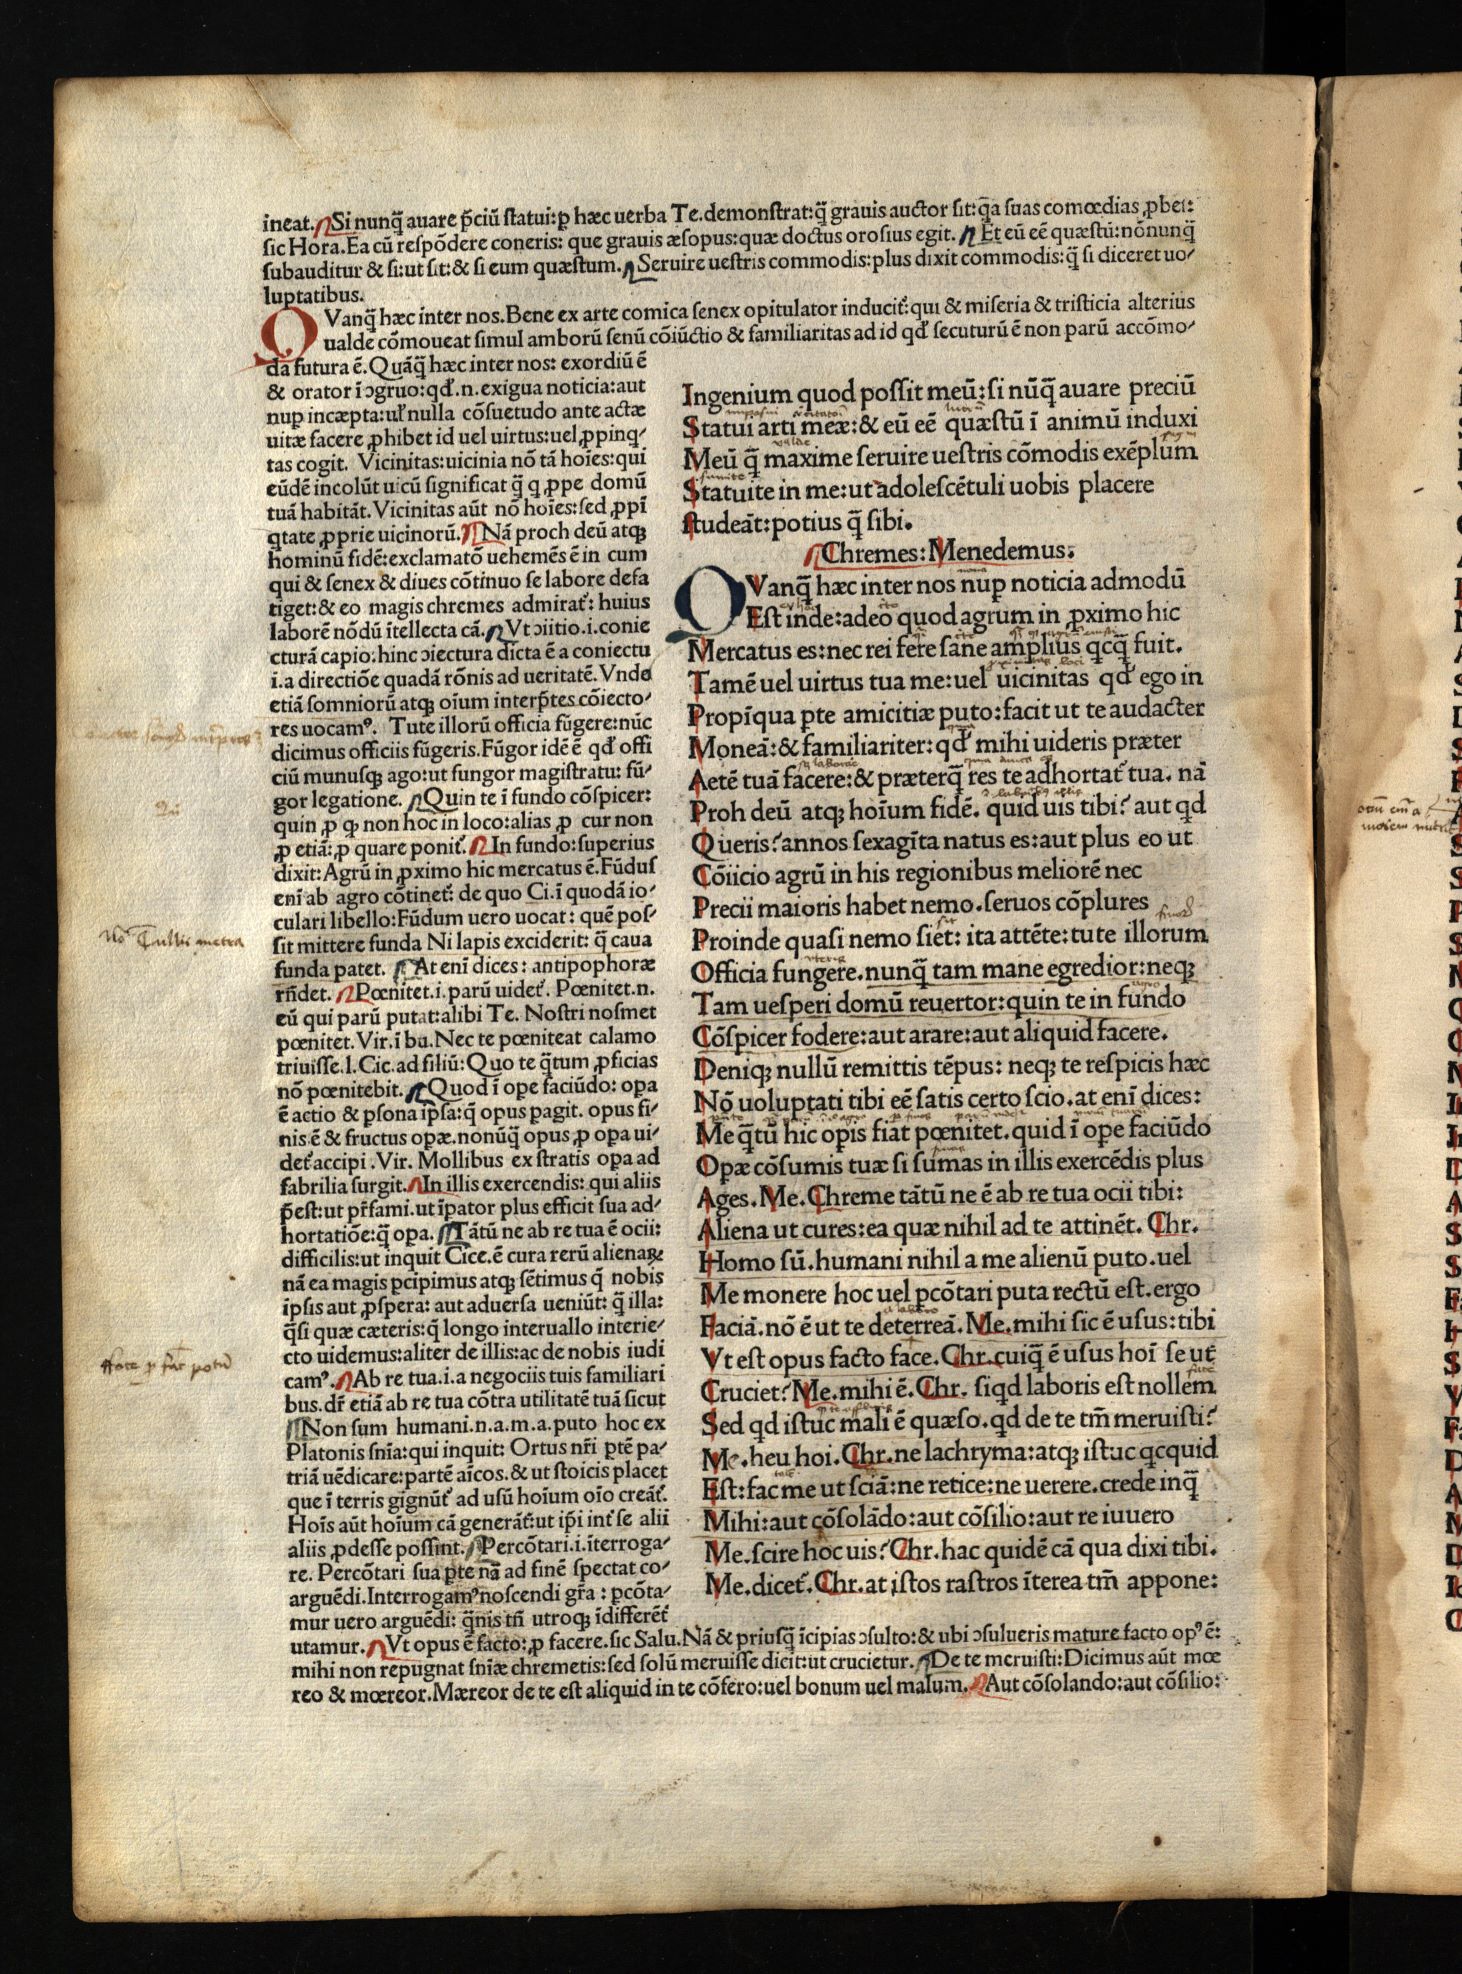 ineat. Si nunq̃ auare p̃ciũ ſtatui: ꝑ hæc uerba Te. demonſtrat: q̃ grauis auctor ſit: q̃a ſuas comœdias ꝓbet:
ſic Hora. Ea cũ reſpõdere coneris: que grauis æſopus: quæ doctus oroſius egit. Et eũ eẽ quæſtũ: nõnunq̃
ſubauditur & ſi: ut ſit: & ſi eum quæſtum. Seruire ueſtris commodis: plus dixit commodis: q̃ ſi diceret uo⸗
luptatibus.
QVanq̃ hæc inter nos. Bene ex arte comica ſenex opitulator inducit᷑: qui & miſeria & triſticia alterius
ualde cõmoueat ſimul amborũ ſenũ cõiũctio & familiaritas ad id qđ ſecuturũ ẽ non parũ accõmo⸗
da futura ẽ. Quãq̃ hæc inter nos: exordiũ ẽ
& orator ĩ ↄgruo: qđ. n. exigua noticia: aut
nuꝑ incæpta: ul̉ nulla cõſuetudo ante actæ
uitæ facere ꝓhibet id uel uirtus: uel ꝓpinq⸗
tas cogit. Vicinitas: uicinia nõ tã hoĩes: qui
eũdẽ incolũt uicũ ſignificat q̃ q ꝓpe domũ
tuã habitãt. Vicinitas aũt nõ hoĩes: ſed ꝓpĩ
qtate ꝓprie uicinorũ. Nã proch deũ atqꝫ
hominũ fidẽ: exclamatõ uehemẽs ẽ in cum
qui & ſenex & diues cõtinuo ſe labore defa
tiget: & eo magis chremes admirat᷑: huius
laborẽ nõdũ ĩtellecta cã. Vt ↄiitio. i. conie
cturã capio. hinc ↄiectura dicta ẽ a coniectu
i. a directiõe quadã rõnis ad ueritatẽ. Vnde
etiã ſomniorũ atqꝫ oĩum interp̃tes cõiecto⸗
res uocamꝰ. Tute illorũ officia fũgere: nũc
dicimus officiis fũgeris. Fũgor idẽ ẽ qđ offi
ciũ munuſqꝫ ago: ut fungor magiſtratu: fũ⸗
gor legatione. Quin te ĩ fundo cõſpicer:
quin ꝓ qꝫ non hoc in loco: alias ꝓ cur non
ꝓ etiã: ꝓ quare ponit᷑. In fundo: ſuperius
dixit: Agrũ in ꝓximo hic mercatus ẽ. Fũduſ
enĩ ab agro cõtinet᷑: de quo Ci. ĩ quodã io⸗
culari libello: Fũdum uero uocat: quẽ poſ⸗
ſit mittere funda Ni lapis exciderit: q̃ caua
funda patet. At enĩ dices: antipophoræ
rñdet. Pœnitet. i. parũ uidet᷑. Pœnitet. n.
eũ qui parũ putat: alibi Te. Noſtri noſmet
pœnitet. Vir. ĩ bu. Nec te pœniteat calamo
triuiſſe. l. Cic. ad filiũ: Quo te q̃tum ꝓficias
nõ pœnitebit. Quod ĩ oꝑe faciũdo: oꝑa
ẽ actio & ꝑſona ipſa: q̃ opus ꝑagit. opus fi⸗
nis ẽ & fructus oꝑæ. nonũq̃ opus ꝓ oꝑa ui⸗
det᷑ accipi. Vir. Mollibus ex ſtratis oꝑa ad
fabrilia ſurgit. In illis exercendis: qui aliis
p̃eſt: ut pr̃fami. ut ĩpator plus efficit ſua ad⸗
hortatiõe: q̃ oꝑa. Tãtũ ne ab re tua ẽ ocii:
difficilis: ut inquit Cice. ẽ cura rerũ alienaꝝ
nã ea magis ꝑcipimus atqꝫ ſẽtimus q̃ nobis
ipſis aut ꝓſpera: aut aduerſa ueniũt: q̃ illa:
q̃ſi quæ cæteris: q̃ longo interuallo interie⸗
cto uidemus: aliter de illis: ac de nobis iudi
camꝰ. Ab re tua. i. a negociis tuis familiari
bus. dr̃ etiã ab re tua cõtra utilitatẽ tuã ſicut
Non ſum humani. n. a. m. a. puto hoc ex
Platonis ſnĩa: qui inquit: Ortus nr̃i ꝑtẽ pa⸗
triã uẽdicare: partẽ aĩcos. & ut ſtoicis placet
que ĩ terris gignũt᷑ ad uſũ hoĩum oĩo creãt᷑.
Hoĩs aũt hoĩum cã generãt᷑: ut ip̃i int᷑ ſe alii
aliis ꝓdeſſe poſſint. Percõtari. i. ĩterroga⸗
re. Percõtari ſua ꝑte nã ad finẽ ſpectat co⸗
arguẽdi. Interrogamꝰ noſcendi gr̃a: ꝑcõta⸗
mur uero arguẽdi: q̃nis tñ utroqꝫ ĩdifferẽt᷑
utamur. Vt opus ẽ facto: ꝓ facere. ſic Salu. Nã & priuſq̃ ĩcipias ↄſulto: & ubi ↄſulueris mature facto opꝰ ẽ:
mihi non repugnat ſnĩæ chremetis: ſed ſolũ meruiſſe dicit: ut crucietur. De te meruiſti: Dicimus aũt mœ
reo & mœreor. Mæreor de te eſt aliquid in te cõfero: uel bonum uel malum. Aut cõſolando: aut cõſilio:
Ingenium quod poſſit meũ: ſi nũq̃ auare preciũ
Statui arti meæ: & eũ eẽ quæſtũ ĩ animũ induxi
Meũ q̃ maxime ſeruire ueſtris cõmodis exẽplum
Statuite in me: ut adoleſcẽtuli uobis placere
ſtudeãt: potius q̃ ſibi.
Chremes: Menedemus.
QVanq̃ hæc inter nos nuꝑ noticia admodũ
Eſt inde: adeo quod agrum in ꝓximo hic
Mercatus es: nec rei fere ſane amplius qcq̃ fuit.
Tamẽ uel uirtus tua me: uel uicinitas qđ ego in
Propĩqua ꝑte amicitiæ puto: facit ut te audacter
Moneã: & familiariter: qđ mihi uideris præter
Aetẽ tuã facere: & præterq̃ res te adhortat᷑ tua. nã
Proh deũ atqꝫ hoĩum fidẽ. quid uis tibi? aut qd
Queris? annos ſexagĩta natus es: aut plus eo ut
Cõiicio agrũ in his regionibus meliorẽ nec
Precii maioris habet nemo. ſeruos cõplures
Proinde quaſi nemo ſiet: ita attẽte: tute illorum
Officia fungere. nunq̃ tam mane egredior: neqꝫ
Tam ueſperi domũ reuertor: quin te in fundo
Cõſpicer fodere: aut arare: aut aliquid facere.
Deniqꝫ nullũ remittis tẽpus: neqꝫ te reſpicis hæc
Nõ uoluptati tibi eẽ ſatis certo ſcio. at enĩ dices:
Me q̃tũ hic oꝑis fiat pœnitet. quid ĩ oꝑe faciũdo
Oꝑæ cõſumis tuæ ſi ſumas in illis exercẽdis plus
Ages. Me. Chreme tãtũ ne ẽ ab re tua ocii tibi:
Aliena ut cures: ea quæ nihil ad te attinẽt. Chr.
Homo ſũ. humani nihil a me alienũ puto. uel
Me monere hoc uel ꝑcõtari puta rectũ eſt. ergo
Faciã. nõ ẽ ut te deterreã. Me. mihi ſic ẽ uſus: tibi
Vt eſt opus facto face. Chr. cuiq̃ ẽ uſus hoĩ ſe ut
Cruciet? Me. mihi ẽ. Chr. ſiqd laboris eſt nollem
Sed qd iſtuc mali ẽ quæſo. qd de te tm̃ meruiſti?
Me. heu hoi. Chr. ne lachryma: atqꝫ iſtuc qcquid
Eſt: fac me ut ſciã: ne retice: ne uerere. crede inq̃
Mihi: aut cõſolãdo: aut cõſilio: aut re iuuero
Me. ſcire hoc uis? Chr. hac quidẽ cã qua dixi tibi.
Me. dicet᷑. Chr. at iſtos raſtros ĩterea tm̃ appone: